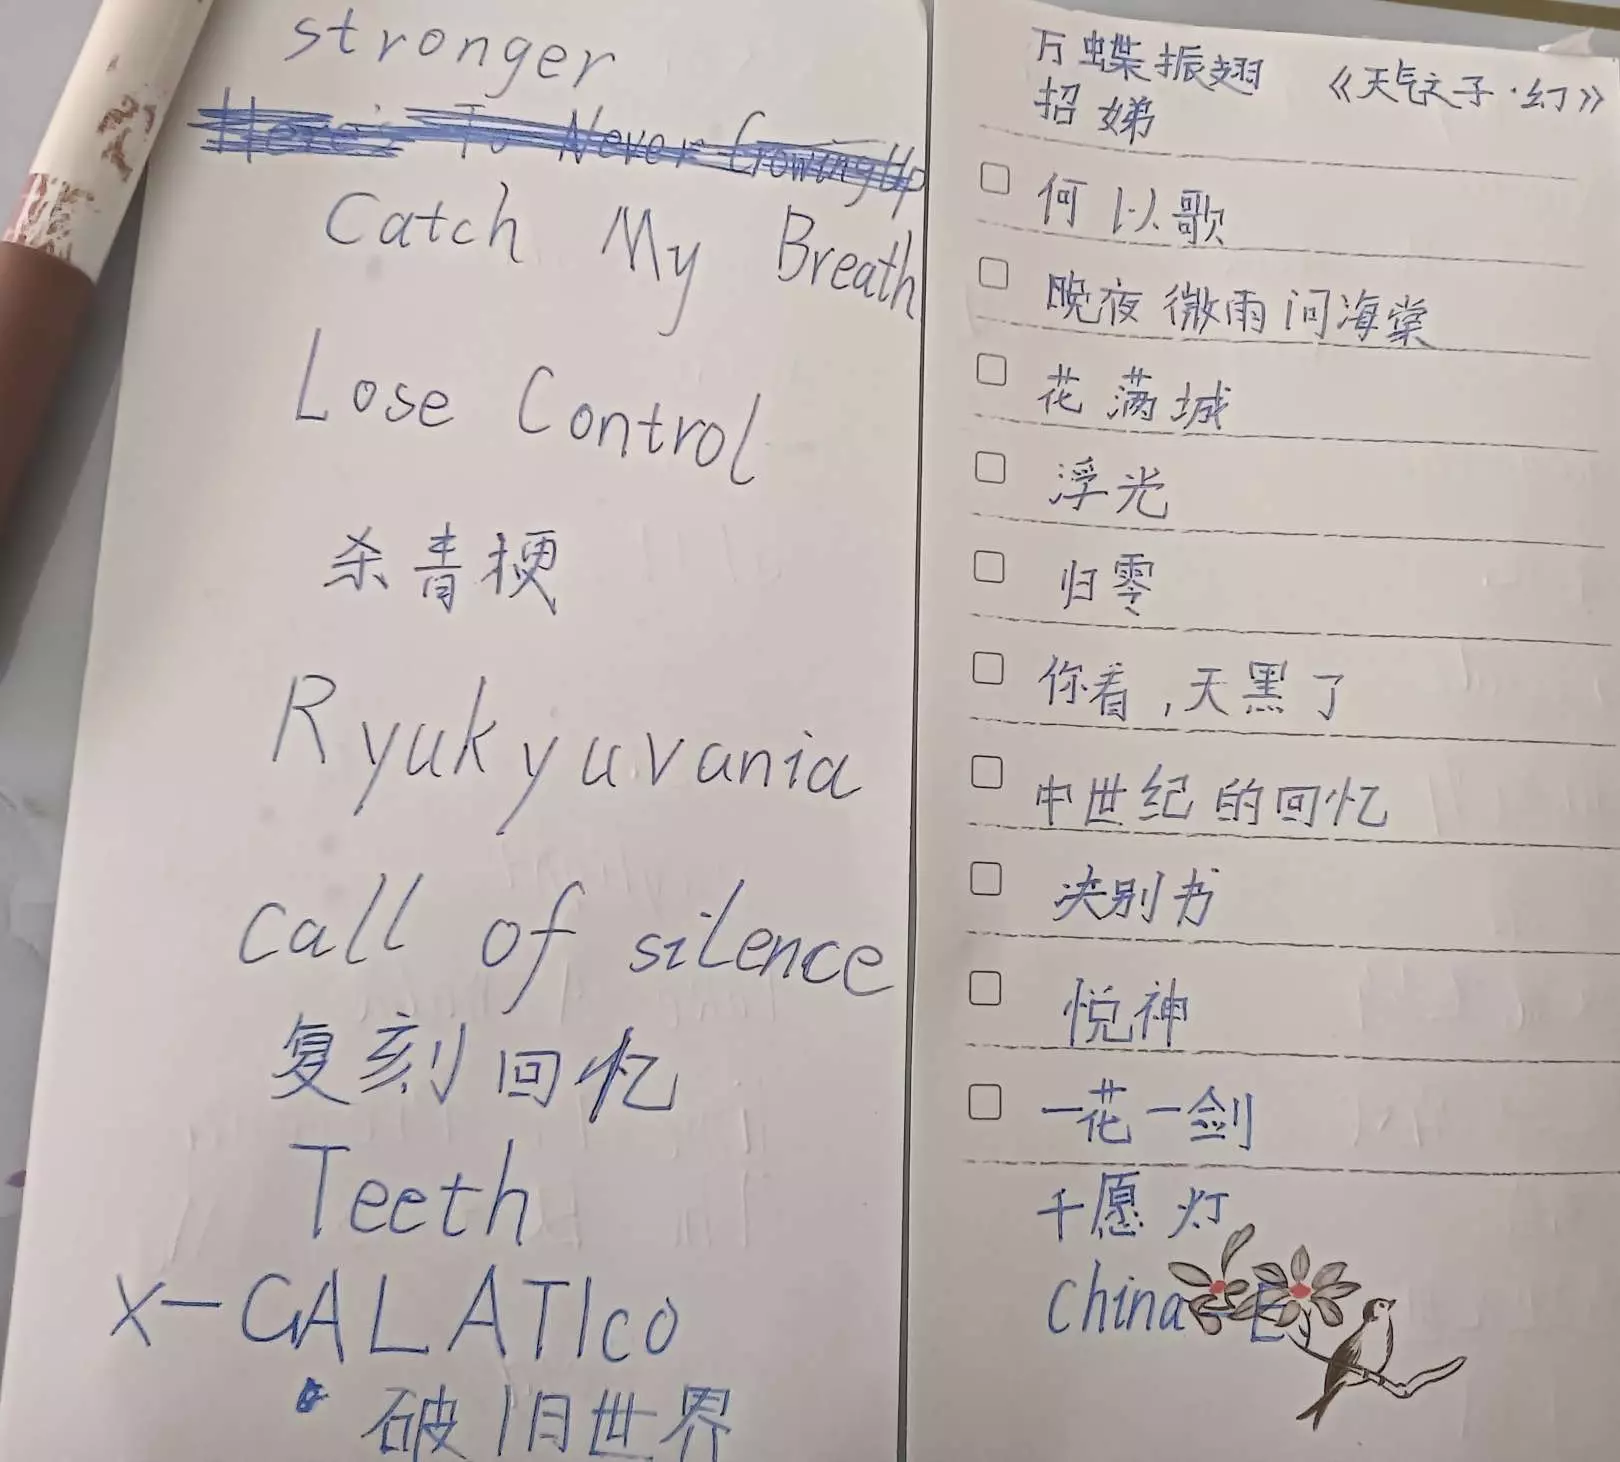 stronger
Here's To Never Growing Up
Catch My Breath
Lose Control
杀青梗
Ryukyuvania
call of silence
复刻回忆
Teeth
X-GALATIco
破旧世界
万蝶振翅 《天气之子·幻》
招娣
何以歌
晚夜微雨问海棠
花满城
浮光
归零
你看,天黑了
中世纪的回忆
决别书
悦神
一花一剑
千愿灯
China-E